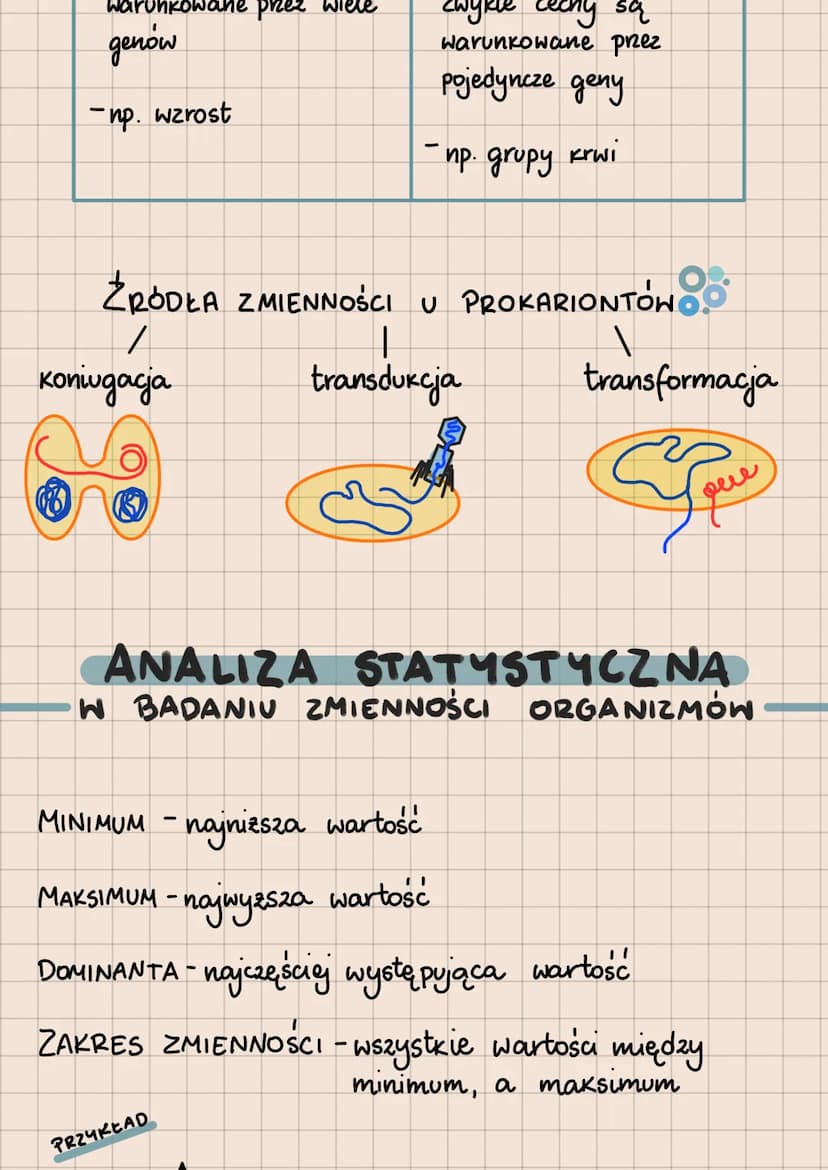 warunkowane przez wiele
genów
- np. wzrost
zwykle cechy są
warunkowane przez
pojedyncze geny
- np. grupy krwi
ŹRÓDŁA ZMIENNOŚCI U PROKARIONTÓW
koniugacja
transdukcja
transformacja
ANALIZA STATYSTYCZNA
W BADANIU ZMIENNOŚCI ORGANIZMÓW
MINIMUM - najniższa wartość
MAKSIMUM - najwyższa wartość
DOMINANTA - najczęściej występująca wartość
ZAKRES ZMIENNOŚCI - wszystkie wartości między
minimum, a maksimum
PRZYKŁAD